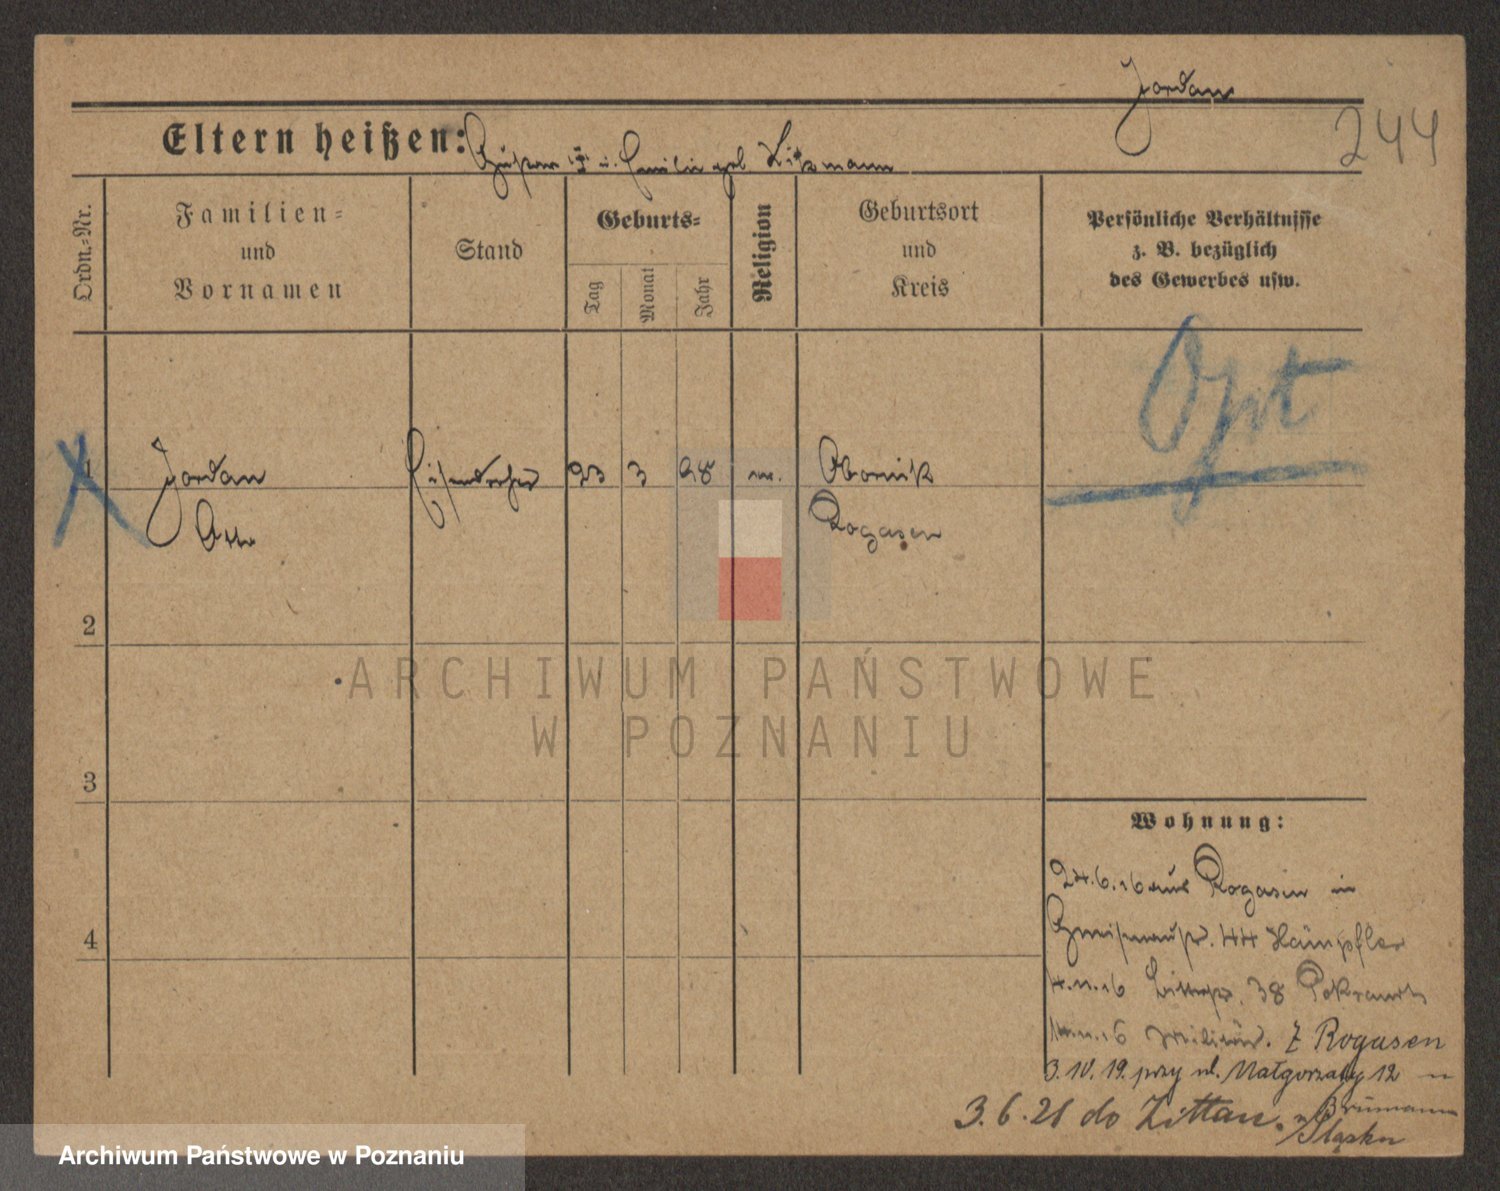 Jordan
244
Eltern heißen: Gustav u. Emilie geb Litzmann
Ordn.-Nr.
Familien-
und
Vornamen
Stand
Geburts-
Tag
Monat
Jahr
Religion
Geburtsort
und
Kreis
Persönliche Verhältnisse
z. B. bezüglich
des Gewerbes usw.
Opt
1 Jordan Eisendreher 23 3 98 Obornik
Otto Rogasen
2
3
4
Wohnung:
24.6.16 aus Rogasen in
Gneisenaustr. 44
14.11.16 38
14.11.16 Militär. z Rogasen
3.10.19. przy ul. Małgorzaty 12
3.6.21 do Zittau. n
Śląsku
ARCHIWUM PAŃSTWOWE
W POZNANIU
Archiwum Państwowe w Poznaniu